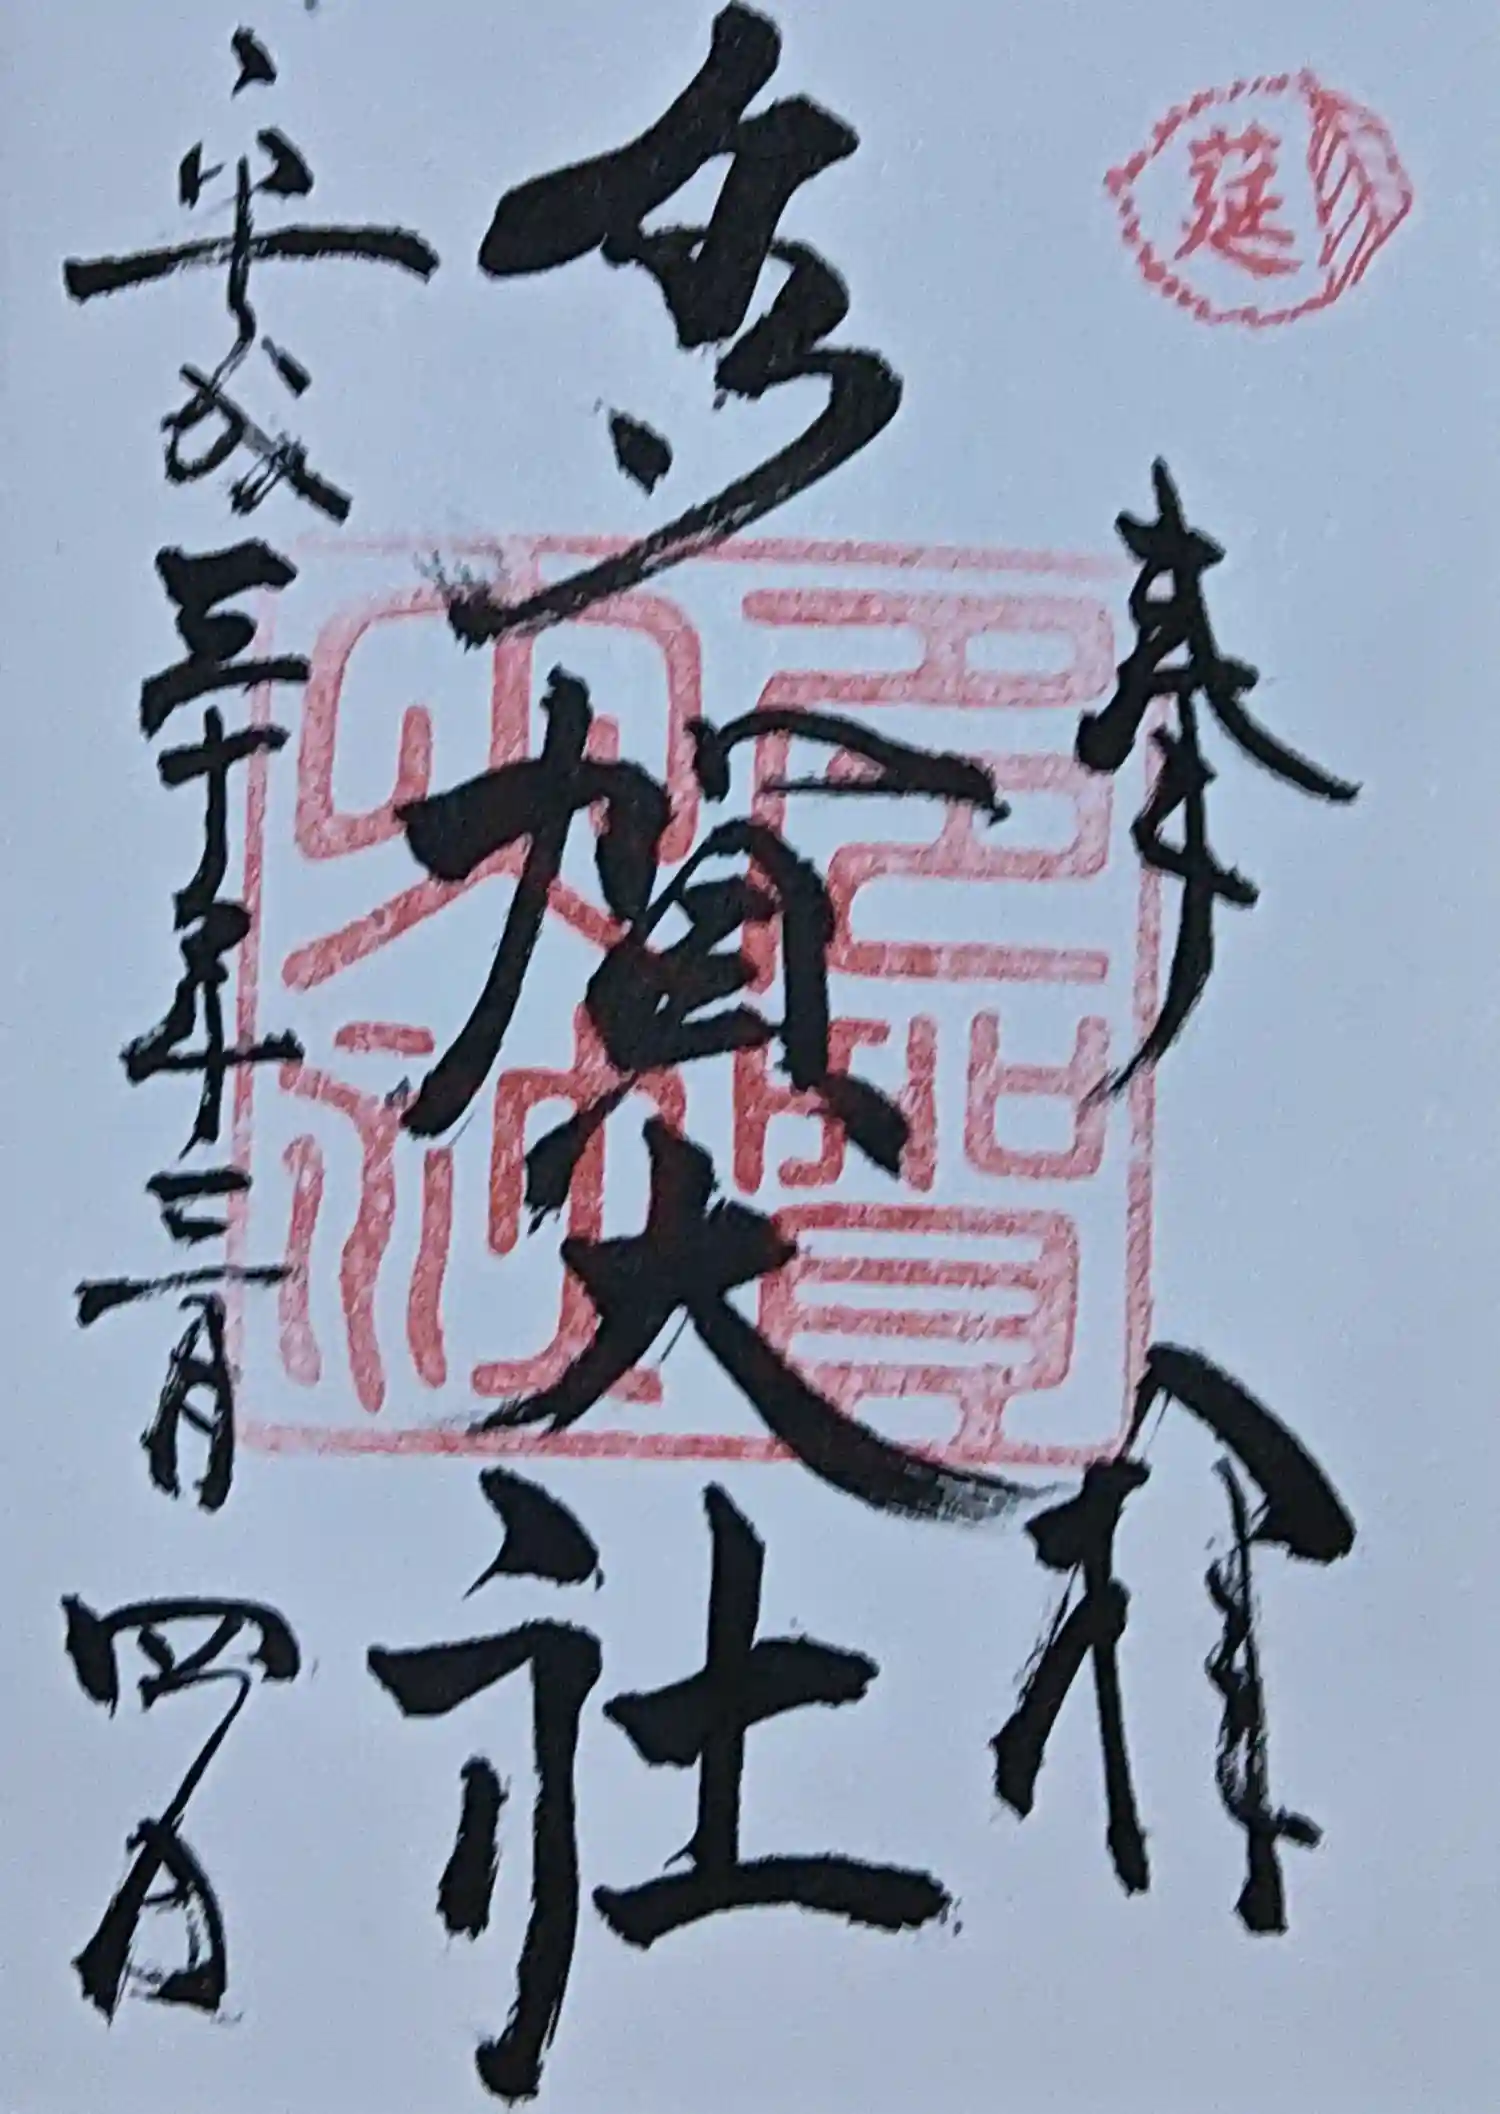 莚
奉拝
多賀大社
多賀大社
平成三十年三月四日